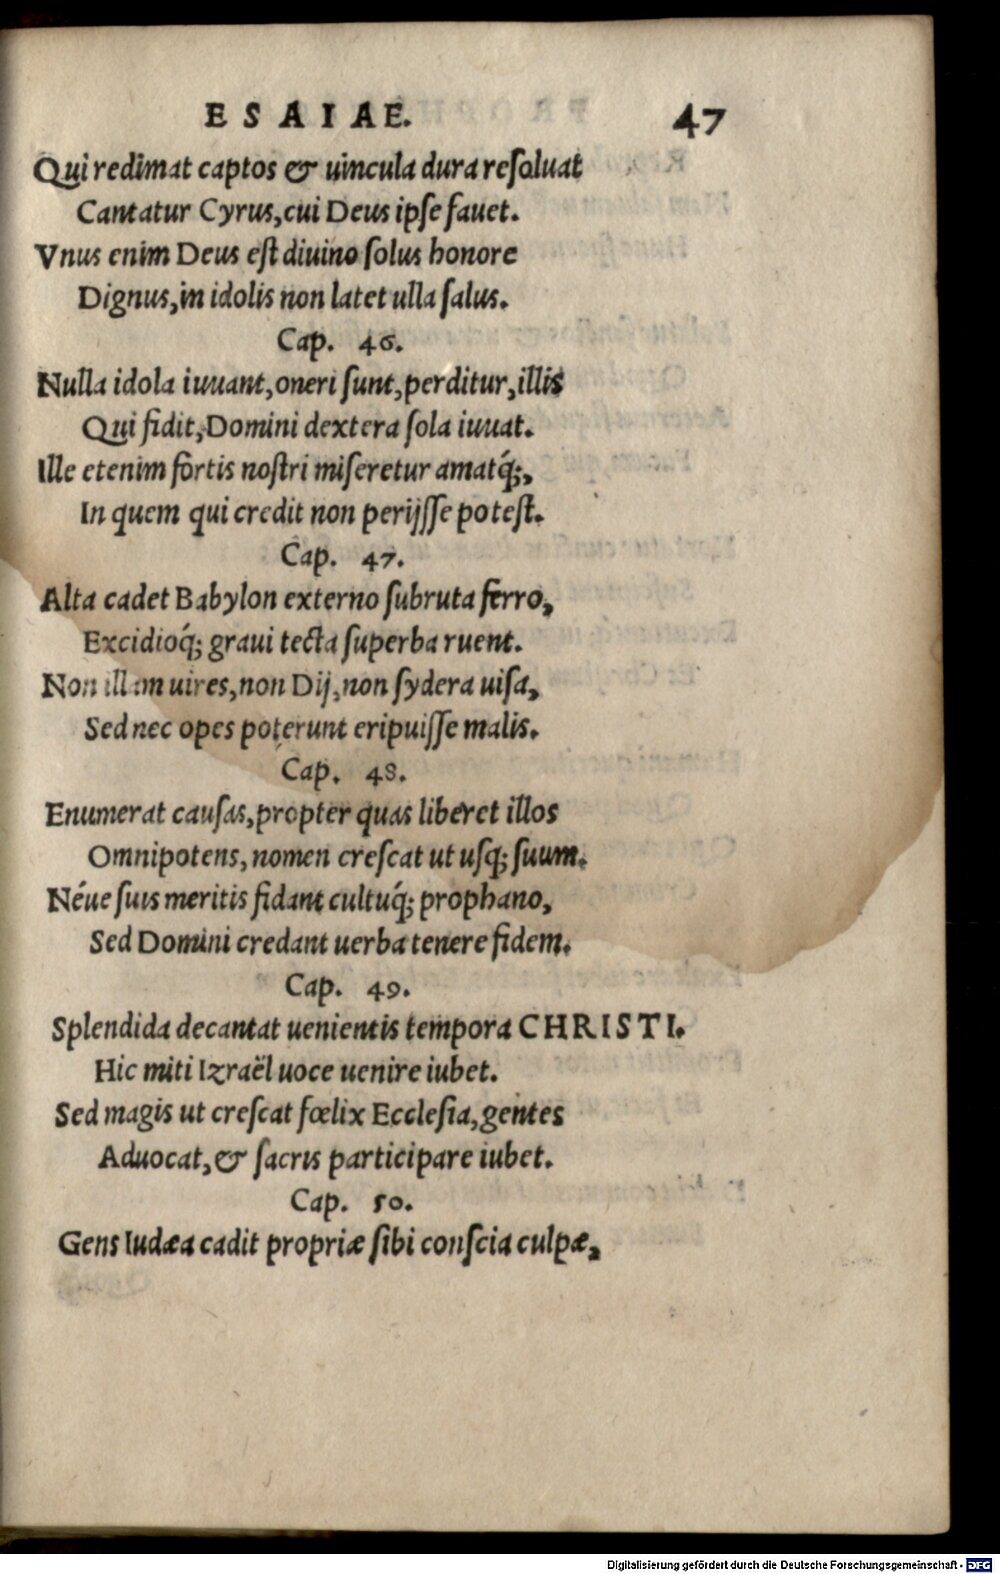 ESAIAE. 47
Qui redimat captos & uincula dura reſoluat
Cantatur Cyrus, cui Deus ipſe fauet.
Vnus enim Deus eſt diuino ſolus honore
Dignus, in idolis non latet ulla ſalus.
Cap. 46.
Nulla idola iuuant, oneri ſunt, perditur, illis
Qui fidit, Domini dextera ſola iuuat.
Ille etenim fortis noſtri miſeretur amatq́;,
In quem qui credit non perijſſe poteſt.
Cap. 47.
Alta cadet Babylon externo ſubruta ferro,
Excidioq́; graui tecta ſuperba ruent.
Non illam uires, non Dij, non ſydera uiſa,
Sed nec opes poterunt eripuiſſe malis.
Cap. 48.
Enumerat cauſas, propter quas liberet illos
Omnipotens, nomen creſcat ut uſq; ſuum.
Néue ſuis meritis fidant cultuq́; prophano,
Sed Domini credant uerba tenere fidem.
Cap. 49.
Splendida decantat uenientis tempora CHRISTI.
Hic miti Izraël uoce uenire iubet.
Sed magis ut creſcat fœlix Eccleſia, gentes
Aduocat, & ſacris participare iubet.
Cap. 50.
Gens Iudæa cadit propriæ ſibi conſcia culpæ,
Digitalisierung gefördert durch die Deutsche Forschungsgemeinschaft - DFG